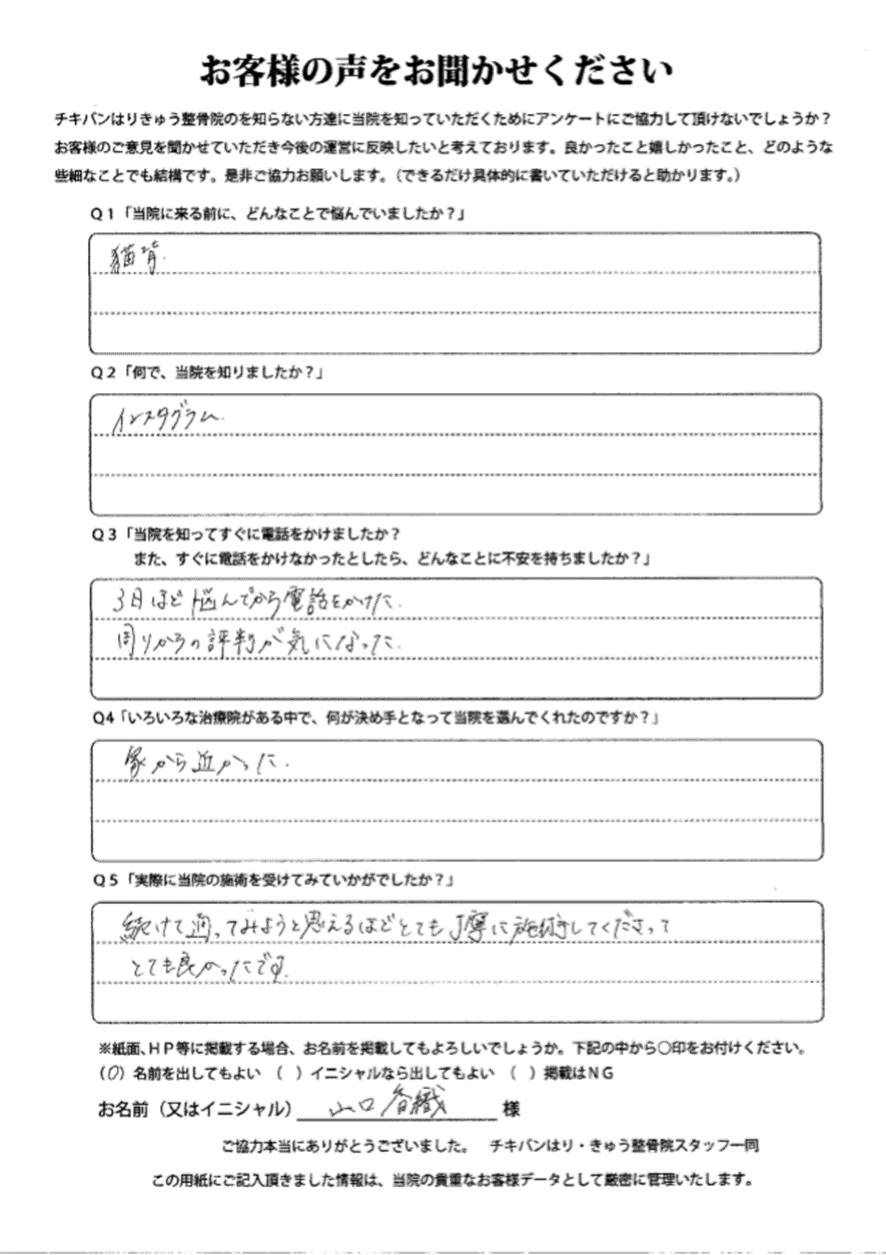 お客様の声をお聞かせください
チキバンはりきゅう整骨院のを知らない方達に当院を知っていただくためにアンケートにご協力して頂けないでしょうか？
お客様のご意見を聞かせていただき今後の運営に反映したいと考えております。良かったこと嬉しかったこと、どのような
些細なことでも結構です。是非ご協力お願いします。（できるだけ具体的に書いていただけると助かります。）
Ｑ１「当院に来る前に、どんなことで悩んでいましたか？」
猫背.
Ｑ２「何で、当院を知りましたか？」
インスタグラム.
Ｑ３「当院を知ってすぐに電話をかけましたか？
また、すぐに電話をかけなかったとしたら、どんなことに不安を持ちましたか？」
3日ほど悩んでから電話をかけた.
周りからの評判が気になった.
Q4「いろいろな治療院がある中で、何が決め手となって当院を選んでくれたのですか？」
家から近かった.
Ｑ５「実際に当院の施術を受けてみていかがでしたか？」
続けて通ってみようと思えるほどとても丁寧に施術してくださって
とても良かったです.
※紙面、ＨＰ等に掲載する場合、お名前を掲載してもよろしいでしょうか。下記の中から〇印をお付けください。
（〇）名前を出してもよい （ ）イニシャルなら出してもよい （ ）掲載はＮＧ
お名前（又はイニシャル） 山口 香織 様
ご協力本当にありがとうございました。 チキバンはり・きゅう整骨院スタッフ一同
この用紙にご記入頂きました情報は、当院の貴重なお客様データとして厳密に管理いたします。